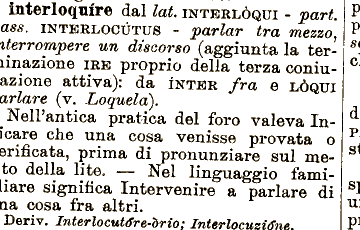 interloquíre dal lat. INTERLÒQUI - part.
ass. INTERLOCÚTUS - parlar tra mezzo,
nterrompere un discorso (aggiunta la ter-
minazione IRE proprio della terza coniu-
azione attiva): da ÍNTER fra e LÒQUI
arlare (v. Loquela).
Nell'antica pratica del foro valeva In-
icare che una cosa venisse provata o
erificata, prima di pronunziare sul me-
to della lite. — Nel linguaggio fami-
liare significa Intervenire a parlare di
na cosa fra altri.
Deriv. Interlocutóre-òrio; Interlocuzióne.